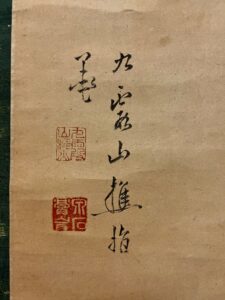 九霞山樵指
墨